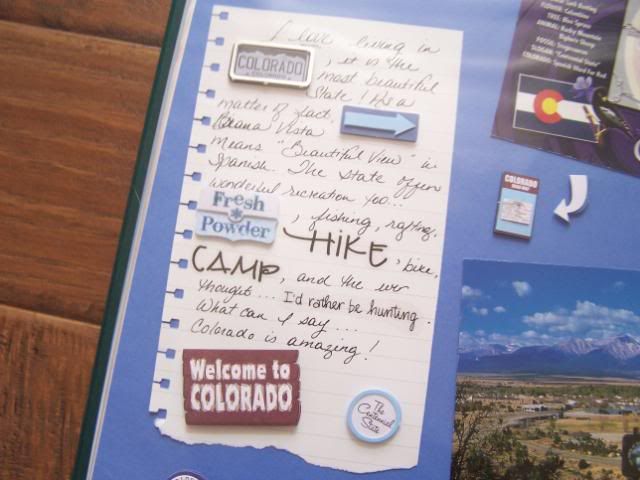 I love living in
COLORADO
COLORADO
, it is the
most beautiful
State! As a
matter of fact,
Buana Vista
means "Beautiful View" in
Spanish. The State offers
wonderful recreation too...
Fresh
Powder
, fishing, rafting,
HIKE, bike,
CAMP, and the
thought... I'd rather be hunting.
What can I say...
Colorado is amazing!
Welcome to
COLORADO
The
Centennial
State
FLOWER: Columbine
TREE: Blue Spruce
ANIMAL: Rocky Mountain
Bighorn Sheep
FOSSIL: Stegosaurus
SLOGAN: "Centennial State"
COLORADO: Spanish Word For Red
COLORADO